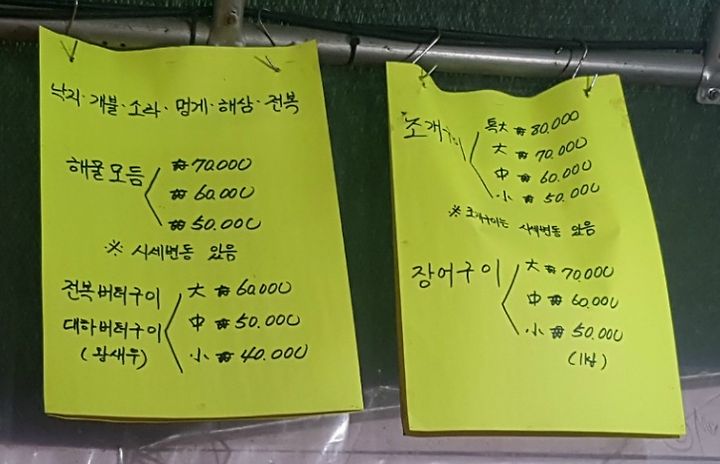 낙지·개불·소라·멍게·해삼·전복
해물모듬 ₩70.000
₩60.000
₩50.000
※ 시세변동 있음
전복버터구이
대하버터구이
(왕새우)
大 ₩60.000
中 ₩50.000
小 ₩40.000
조개구이
特大 ₩80.000
大 ₩70.000
中 ₩60.000
小 ₩50.000
※ 조개구이는 시세변동 있음
장어구이
大 ₩70.000
中 ₩60.000
小 ₩50.000